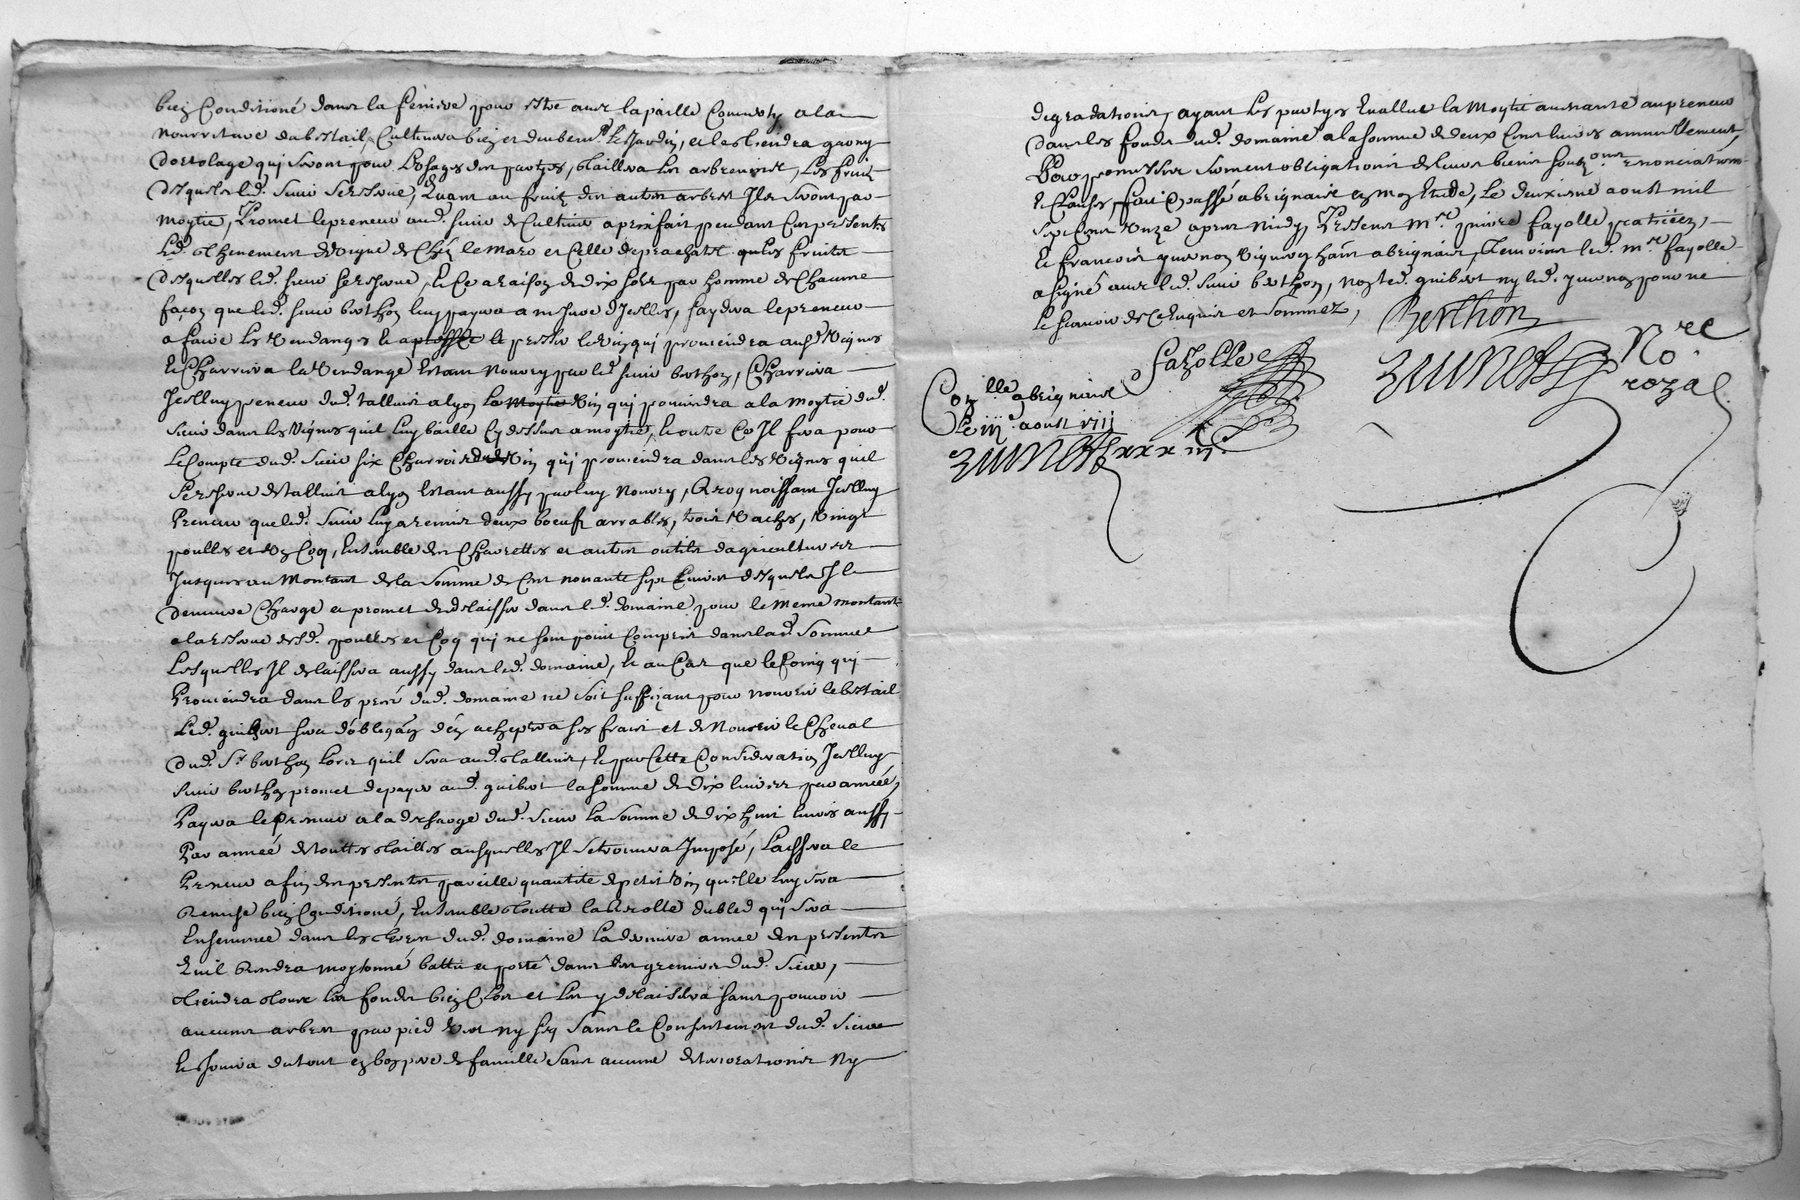 bien Conditioné dans la feniere pour estre avec la paille Convertis a la
nourriture du bestail, Cultivera bien et deubem.t le Jardin, et le tiendra garny
dortolage qui seront pour lusage des partyes, taillera les arbres nins, les fruits
desquels led. sieur se reserve, Quant au fruits des autres arbres Ils seront par
moytié, Promet le preneur aud. sieur de Cultiver a prix fait pendant Ces presentes
Led. thenement de vigne de Chez le Maro et Celle de prachatel que les fruits
desquelles led. sieur se reserve, et Ce a raison de dix sols par homme de Chacune
façon que led. sieur berthon luy payera a mesure d'Icelles, faydera le preneur
a faire les Vendanges et a presser le pressis le vin qui proviendra ausd. Vignes
et Charriera la Vendange Estant Nourry par led. sieur berthon, Charriera
Icelluy preneur dud. talluis a lyon la Moytié vin qui proviendra a la moytié dud.
sieur dans les Vignes quil luy baille Cy dessus a moytié, et outre Ce Il fera pour
le Compte dud. sieur six Charrois de Vin qui proviendra dans les Vignes quil
se reserve de talluis a lyon Estant aussy par luy Nourry, Recognoissant Icelluy
Preneur que led. sieur luy a remis deux boeufs arrables, trois Vaches, Vingt
poulles et un Coq, Ensemble des Charrettes et autres outils dagricultures
Jusques au Montant de la somme de Cent nonante sept livres desquels Il
demeure Chargé et promet de delaisser dans led. domaine pour le meme montant
a la reserve desd. poulles et Coq qui ne sont point Compris dans lad. somme
Lesquelles Il delaissera aussy dans led. domaine, et au Cas que le foing qui
Proviendra dans les prés dud. domaine ne soit suffizant pour nourrir le bestail
Led. guibert sera dobligaon den achepter a ses frais et de Nourrir le Cheval
dud. Sr. berthon lors quil sera aud. talluis, et par Cette Consideration Icelluy
sieur berthon promet de payer aud. guibert la somme de dix livres par année,
Payera le Preneur a la descharge dud. sieur la somme de dix huit livres aussy
Par année de touttes tailles ausquelles Il se trouvera Imposé, Laissera le
Preneur a fin des presentes pareille quantité de petit vin quelle luy sera
Remise bien Conditioné, Ensemble toutte la Recolte du bled qui sera
Ensemmée dans les terres dud. domaine la derniere année des presentes
Quil Rendra moysonné battu et porté dans les greniers dud. sieur,
tiendra tous les fonds bien Clos et les y delaissera sans pouvoir
aucuns arbres par pied vert ny sec sans le Consentement dud. sieur
et Jouira du tout en bon pere de famille sans aucune deteriorations Ny
degradations, ayant les partyes Evallué la Moytié avenante au preneur
dans les fonds dud. domaine a la somme de deux Cent livres annuellement,
Pour serment obligations de leurs biens soubzons renonciations
et Clauses, fait et passé a brignais en mon Etude, le deuxieme aoust mil
sept Cent Unze apres midy, Presents M.re pierre fayolle praticien,
et francois Vigneron hant a brignais, temoins led. M.re fayolle
a signé avec led. sieur berthon, non led. guibert ny led. pour ne
le scavoir de Ce Enquis et sommez,
Berthon
Fayolle
No.re
royal
Con.llé a brignais
le iije aoust 1711